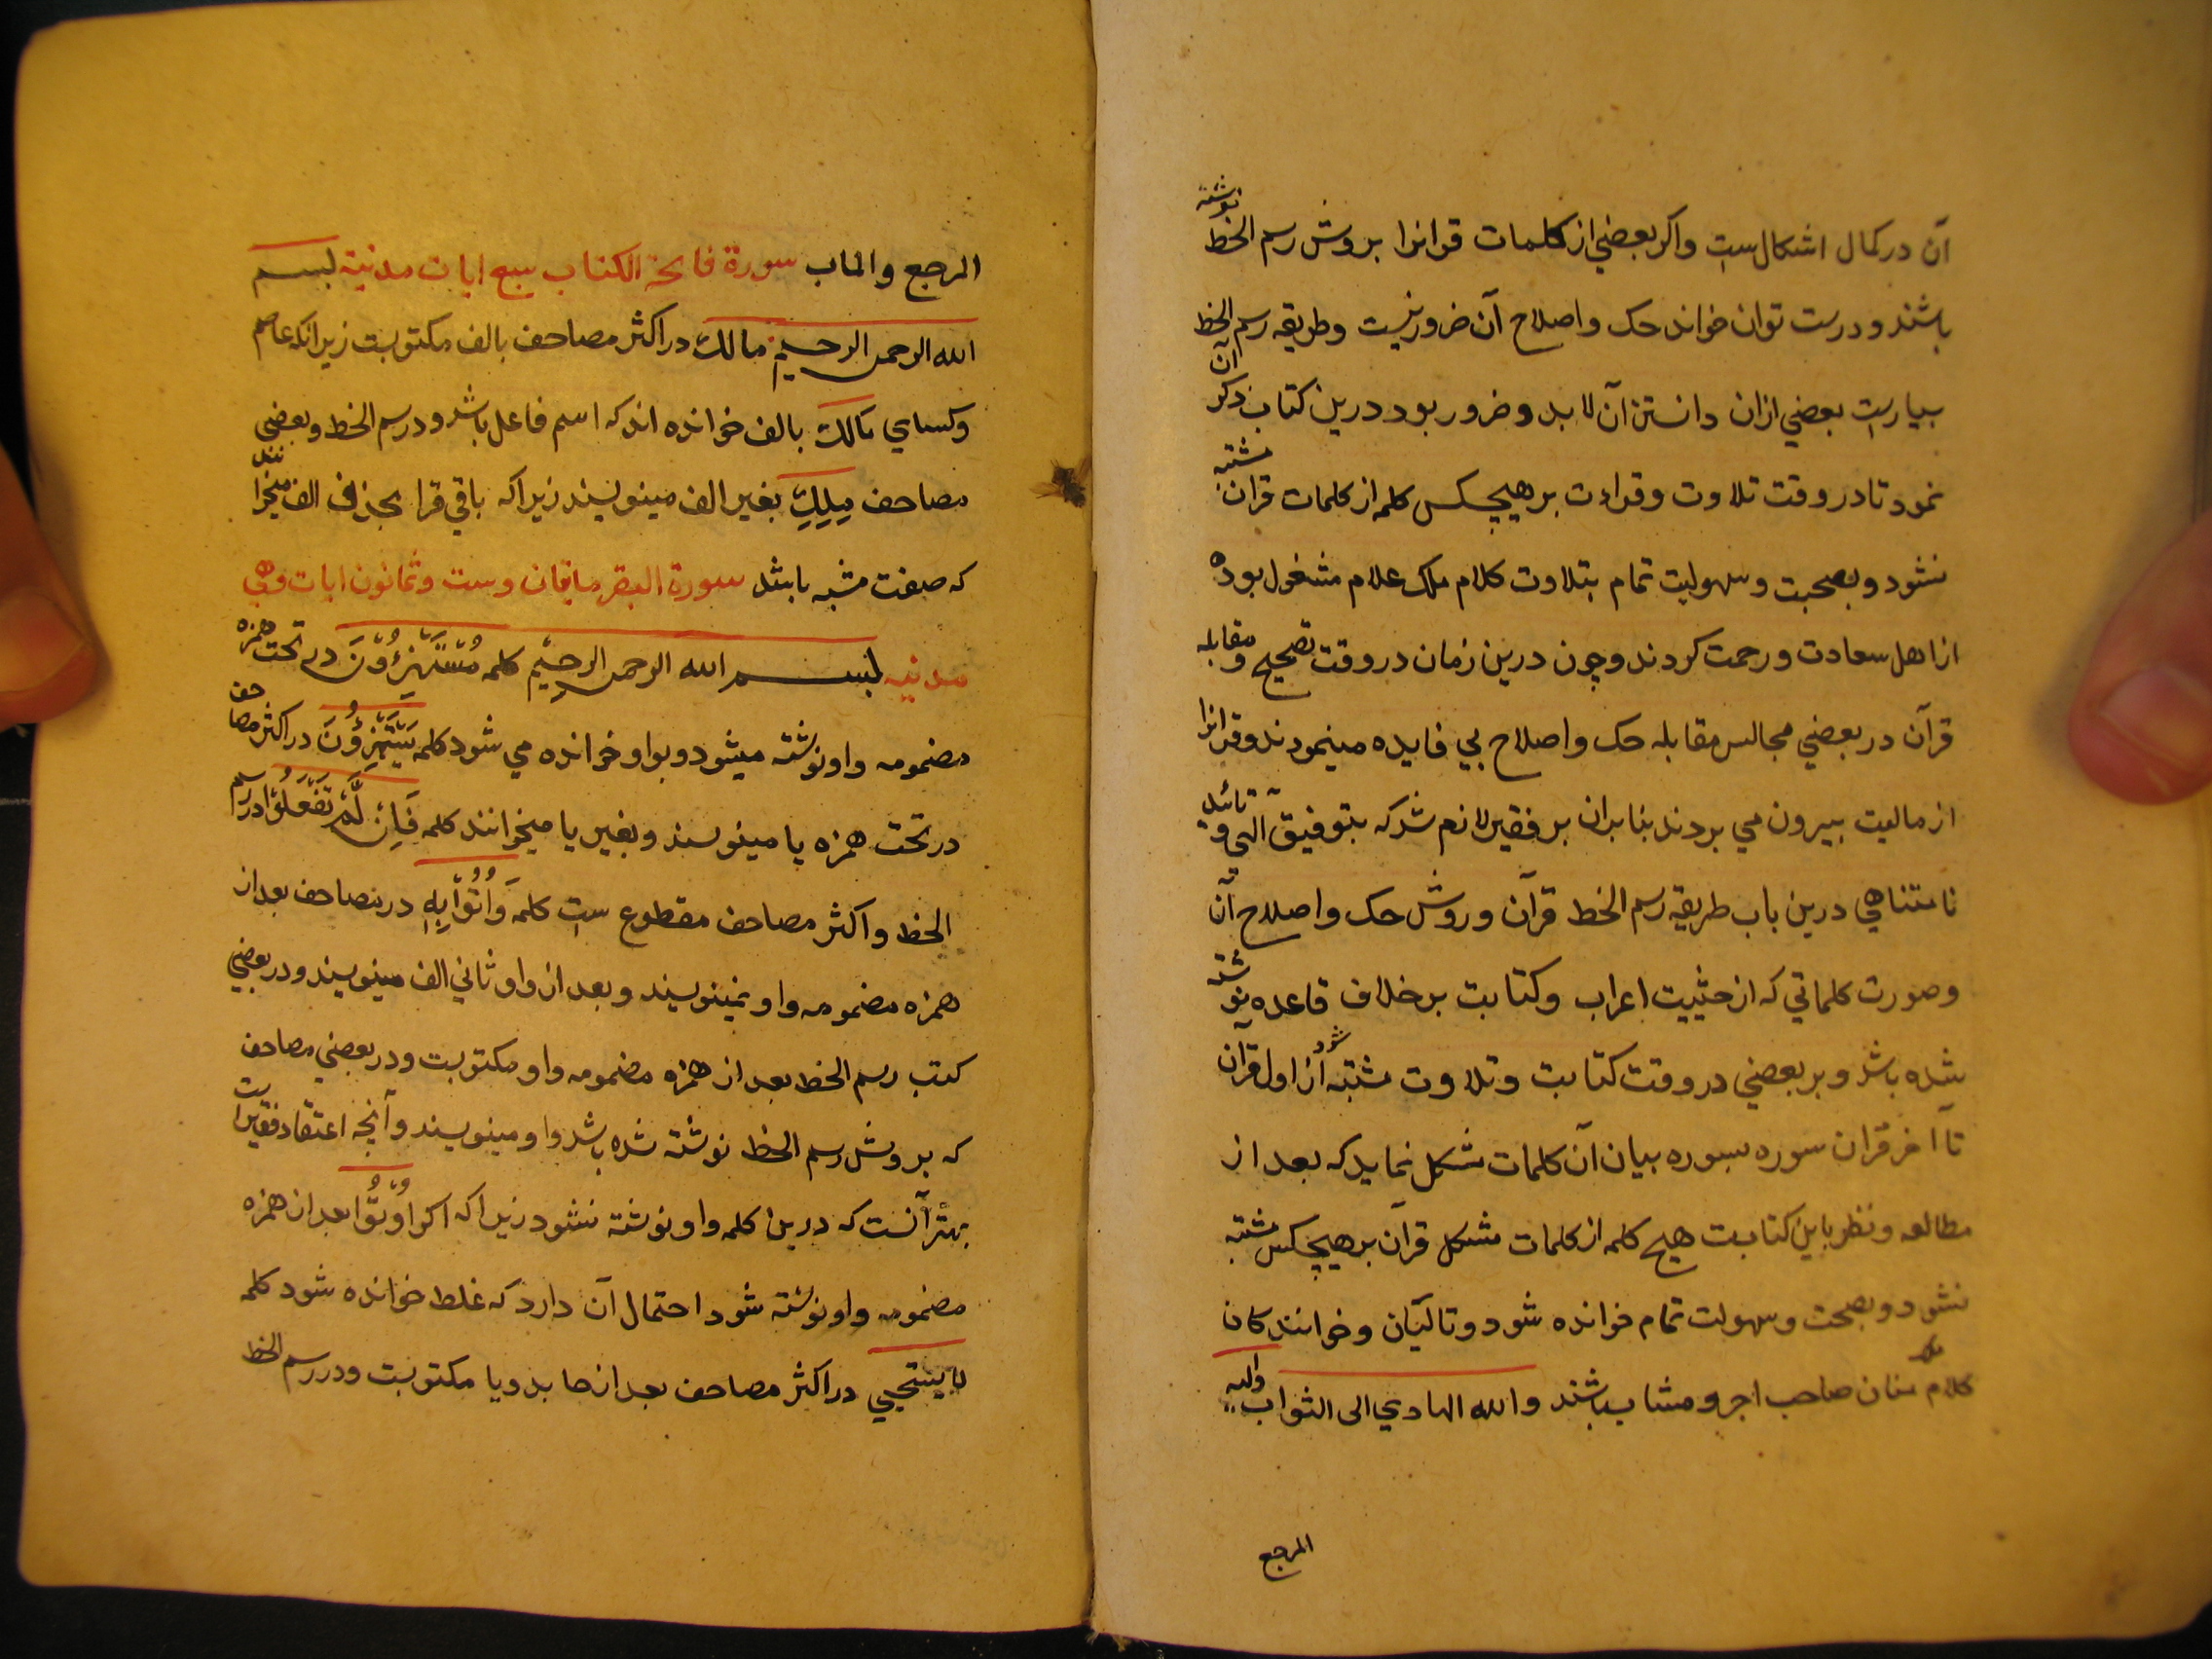 آن در کمال اشکال است واکر بعضي از کلمات قرانرا بروش رسم الخط نوشته
باشند و درست توان خواند حک واصلاح آن ضرور نیست وطریقه رسم الخط
بسیارست بعضي ازان دانستن آن لابد وضرور بود درین کتاب ذکر آن
نمود تا در وقت تلاوت وقراءت بر هیچکس کلمه از کلمات قران مشتبه
نشود و بصحبت وسهولیت تمام بتلاوت کلام ملک علام مشغول بوده
از اهل سعادت ورحمت کردند وچون درین زمان در وقت تصحیح ومقابله
قرآن در بعضي مجالس مقابله حک واصلاح بي فایده مینمودند وقرانرا
از مالیت بیرون مي بردند بنابران بر فقیر لازم شد که بتوفیق آلهي وتائید
نامتناهي درین باب طریقه رسم الخط قرآن وروش حک واصلاح آن
وصورت کلماتي که از حثییت اعراب وکتابت بر خلاف قاعده نوشته
شده باشد و بر بعضي در وقت کتابت وتلاوت مشتبه شود از اول قرآن
تا آخر قران سوره بسوره بیان آن کلمات مشکل نماید که بعد از
مطالعه ونظر باین کتابت هیچ کلمه از کلمات مشکل قرآن بر هیچکس مشتبه
نشود و بصحت وسهولت تمام خوانده شود وتالیّان وخوانندکان
کلام ملک منان صاحب اجر ومثاب باشند والله الهادي الى الثواب والیه
المرجع
المرجع والماب سورة فاتحة الکتاب سبع ایات مدنیة بسم
الله الرحمن الرحیم مالك در اکثر مصاحف بالف مکتوبست زیرانکه عاصم
وکساي مالك بالف خوانده اند که اسم فاعل باشد ودر رسم الخط وبعضي
مصاحف مِلِكِ بغیر الف مینویسند زیراکه باقي قرا بحذف الف میخوانند
که صفت مشبه باشد سورة البقر مایتان وست وثمانون ایات وهي
مدنیه بسم الله الرحمن الرحیم کلمه مُسْتَهْزِءُوْنَ در تحت همزه
مضمومه واو نوشته میشود و بواو خوانده مي شود کلمه یَسْتَهْزِؤُنَ در اکثر مصاحف
در تحت همزه یا مینویسند وبغیر یا میخوانند کلمه فَاِنْ لَّمْ تَفْعَلُوْا در رسم
الخط واکثر مصاحف مقطوع ست کلمه وَاُتُوْابِهِ در مصاحف بعد از
همزه مضمومه واو نمینویسند وبعد از واو ثاني الف مینویسند ودر بعضي
کتب رسم الخط بعد از همزه مضمومه واو مکتوبست ودر بعضي مصاحف
که بروش رسم الخط نوشته شده باشد واو مینویسند وآنچه اعتقاد فقیر است
بهتر آنست که درین کلمه واو نوشته نشود زیراکه اکر اُوْتُوْا بعد از همزه
مضمومه واو نوشته شود احتمال آن دارد که غلط خوانده شود کلمه
لا یستحیي در اکثر مصاحف بعد از حا بدو یا مکتوبست ودر رسم الخط